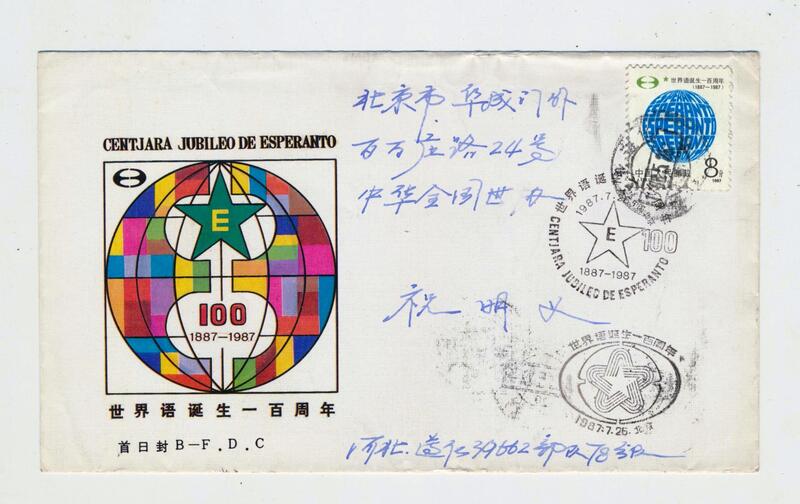 CENTJARA JUBILEO DE ESPERANTO
E
100
1887-1987
世界语诞生一百周年
首日封B-F.D.C
北京市阜成门外
百万庄路24号
中华全国世办
祝明义
河北 遵化39662部队
世界语诞生一百周年
(1887-1987)
ESPERANTO
中国
8
1987
世界语诞生
1987.7.
E
100
1887-1987
CENTJARA JUBILEO DE ESPERANTO
世界语诞生一百周年
1987.7.26.北京